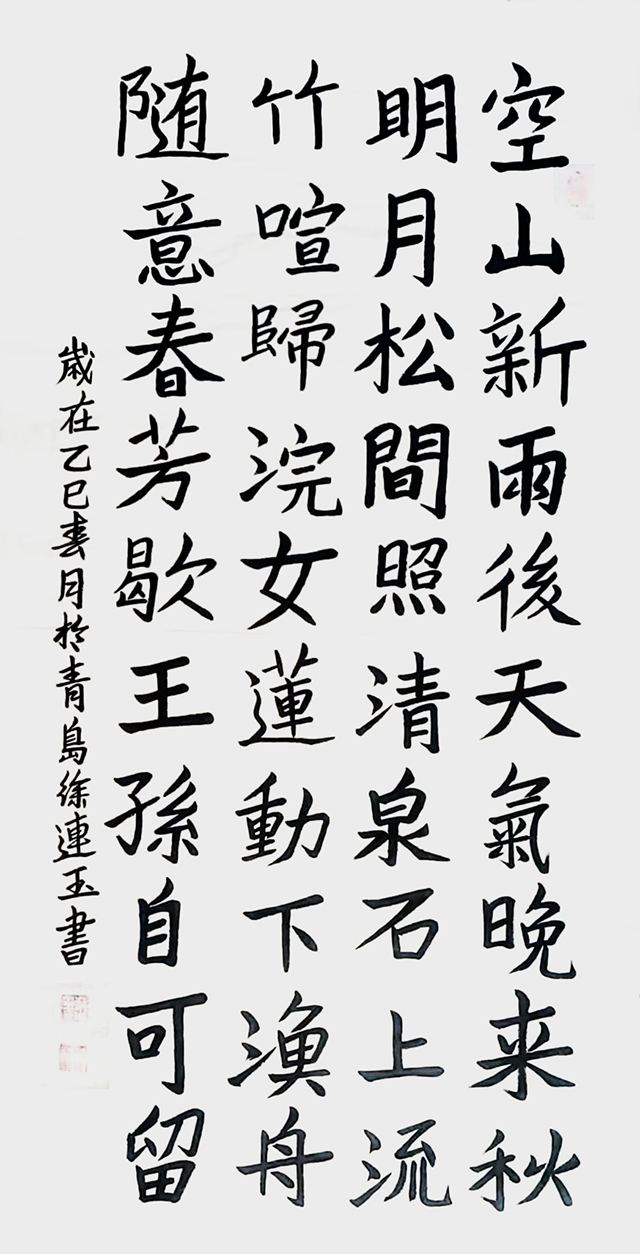 空山新雨後天氣晚来秋
明月松間照清泉石上流
竹喧歸浣女蓮動下漁舟
随意春芳歇王孫自可留
歲在乙巳春月於青島徐連玉書